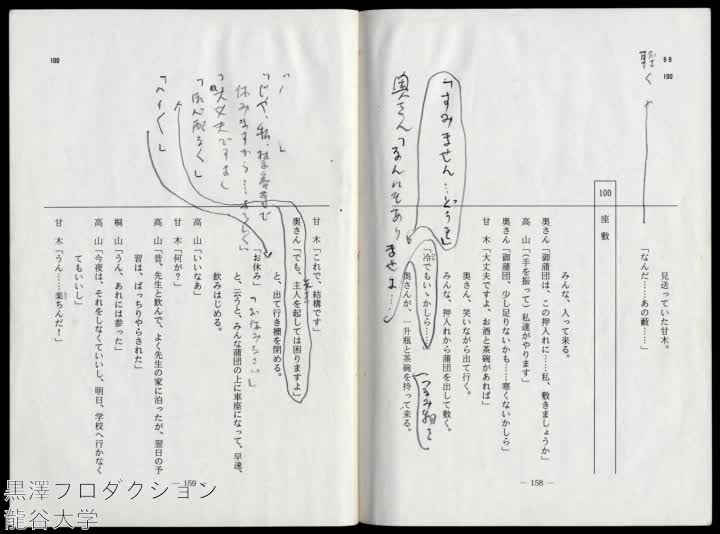 99
100
軽く
見送っていた甘木。
「なんだ……あの藪……」
100 座敷
みんな、入って来る。
奥さん「御蒲団は、この押入れに……私、敷きましょうか」
高山「(手を振って)私達がやります」
奥さん「御蒲団、少し足りないかも……寒くないかしら」
甘木「大丈夫ですよ、お酒と茶碗があれば」
奥さん、笑いながら出て行く。
みんな、押入れから蒲団を出して敷く。
「すみません…どうぞ」
「冷でもいゝかしら……」
奥さんが、一升瓶と茶碗を持って来る。
つまみ物を
奥さん「なんにもありませんよ…」
— 158 —
100
甘木「これで、結構です」
奥さん「でも、主人を起しては困りますよ」
と、出て行き襖を閉める。
「じゃ、私、
休みますから…
「お休み」
「お休みなさい」
「大丈夫ですよ」
「ハイ
と、云うと、みんな蒲団の上に車座になって、早速、
飲みはじめる。
高山「いいなあ」
甘木「何が?」
高山「昔、先生と飲んで、よく先生の家に泊ったが、翌日の予
習は、ばっちりやらされた」
桐山「うん、あれには参った」
高山「今夜は、それをしなくていいし、明日、学校へ行かなく
てもいいし」
甘木「うん……楽ちんだ!」
— 159 —
黒澤プロダクション
龍谷大学